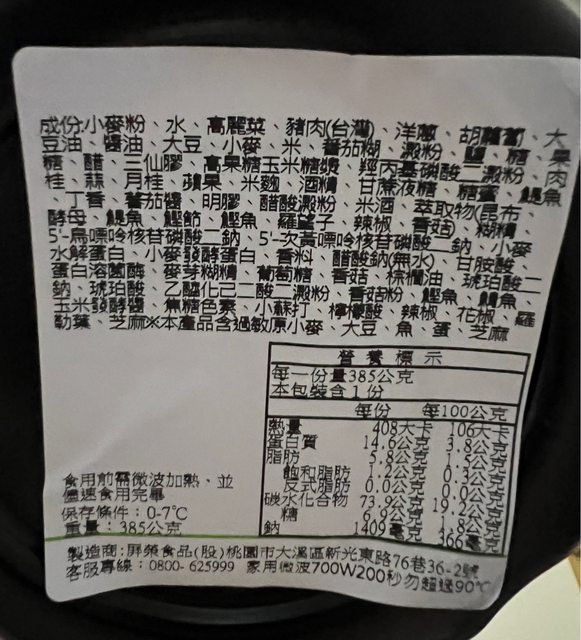 成份:小麥粉、水、高麗菜、豬肉(台灣)、洋蔥、胡蘿蔔、大
豆油、醬油、大豆、小麥、米、番茄糊、澱粉、鹽、糖、果
糖、醋、三仙膠、高果糖玉米糖漿、羥丙基磷酸二澱粉、肉
桂、蒜、月桂、蘋果、米麴、酒精、甘蔗液糖、糖蜜、鯷魚
、丁香、番茄醬、明膠、醋酸澱粉、米酒、萃取物(昆布、
酵母、鯷魚、鰹節、鰹魚、羅望子、辣椒、香菇)、糊精、
5'-鳥嘌呤核苷磷酸二鈉、5'-次黃嘌呤核苷磷酸二鈉、小麥
水解蛋白、小麥發酵蛋白、香料、醋酸鈉(無水)、甘胺酸、
蛋白溶菌酶、麥芽糊精、葡萄糖、香菇、棕櫚油、琥珀酸二
鈉、琥珀酸、乙醯化己二酸二澱粉、香菇粉、鰹魚、鯛魚、
玉米發酵醬、焦糖色素、小蘇打、檸檬酸、辣椒、花椒、羅
勒葉、芝麻※本產品含過敏原小麥、大豆、魚、蛋、芝麻
營養標示
每一份量385公克
本包裝含1份
每份 每100公克
熱量 408大卡 106大卡
蛋白質 14.6公克 3.8公克
脂肪 5.8公克 1.5公克
飽和脂肪 1.2公克 0.3公克
反式脂肪 0.0公克 0.0公克
碳水化合物 73.9公克 19.2公克
糖 6.9公克 1.8公克
鈉 1409毫克 366毫克
食用前需微波加熱、並
儘速食用完畢
保存條件：0-7℃
重量：385公克
製造商:屏榮食品(股)桃園市大溪區新光東路76巷36-2號
客服專線：0800-625999 家用微波700W200秒勿超過90℃